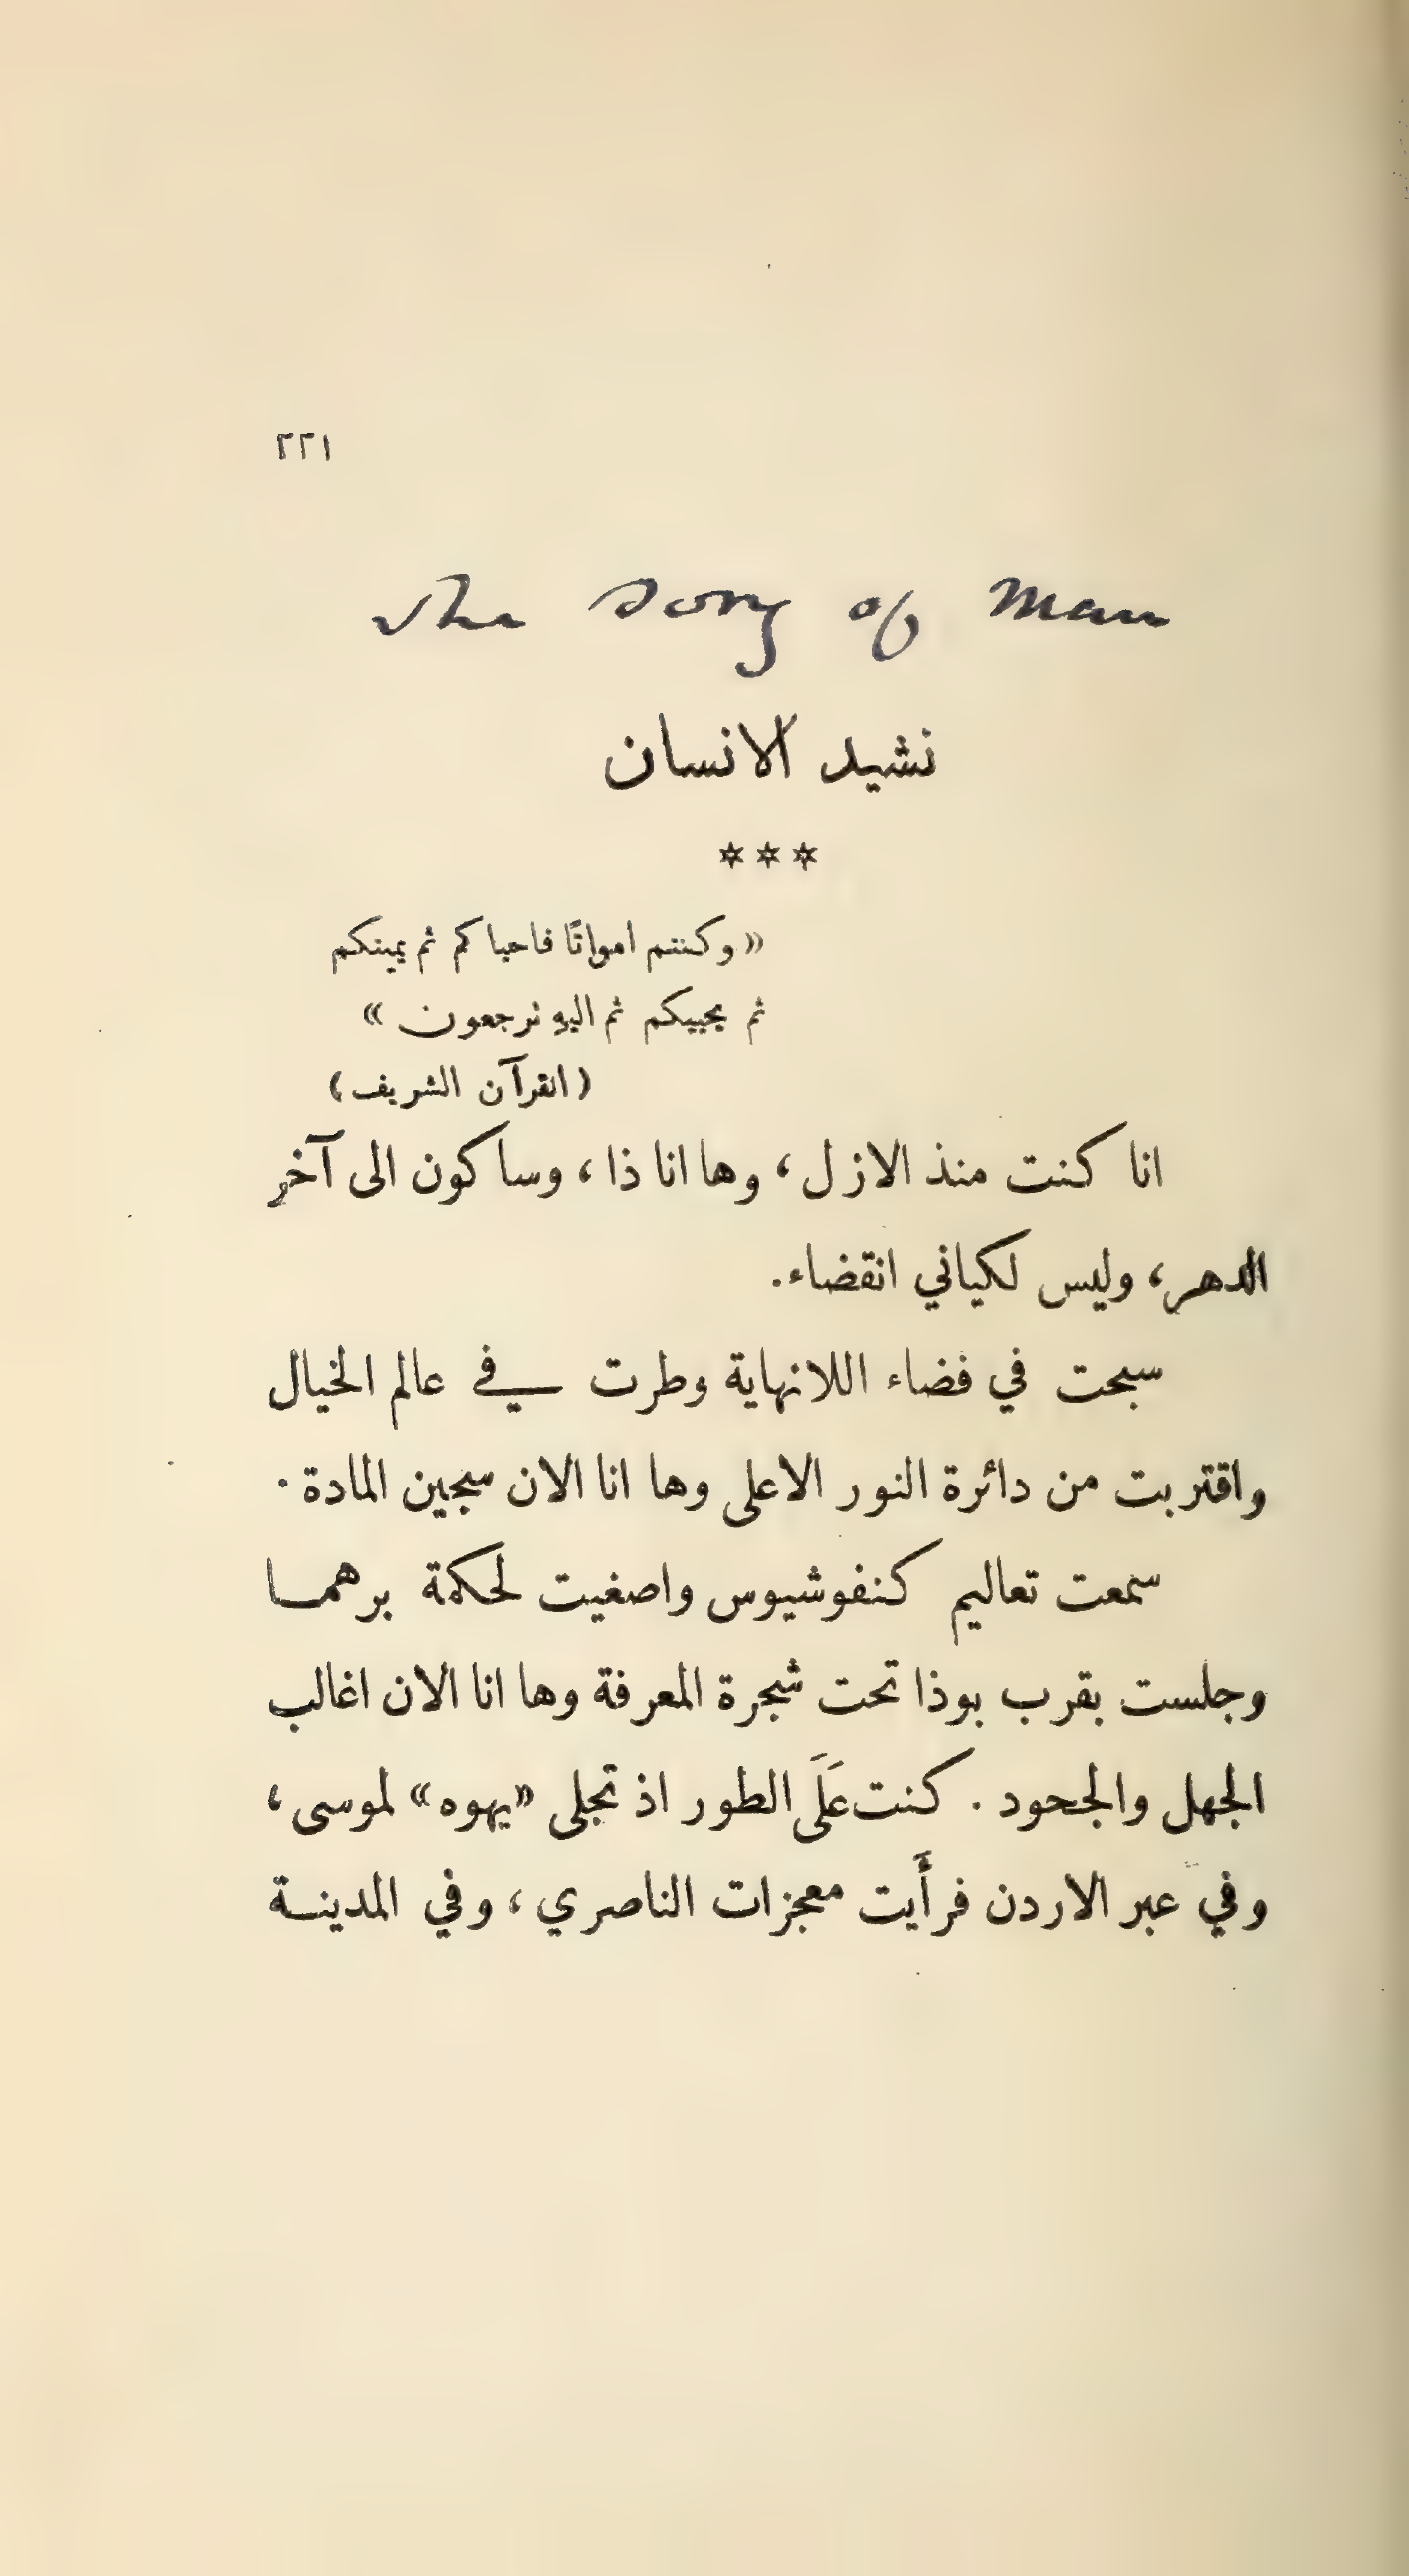 ٢٢١
The Song of Man
نشيد الانسان
***
«وكنتم امواتًا فاحياكم ثم يميتكم
ثم يحييكم ثم اليهِ ترجعون»
(القرآن الشريف)
انا كنت منذ الازل، وها انا ذا، وساكون الى آخر
الدهر، وليس لكياني انقضاء.
سبحت في فضاء اللانهاية وطرت في عالم الخيال
واقتربت من دائرة النور الاعلى وها انا الان سجين المادة.
سمعت تعاليم كنفوشيوس واصغيت لحكمة برهما
وجلست بقرب بوذا تحت شجرة المعرفة وها انا الان اغالب
الجهل والجحود. كنت عَلَى الطور اذ تجلى «يهوه» لموسى،
وفي عبر الاردن فرأَيت معجزات الناصري، وفي المدينة